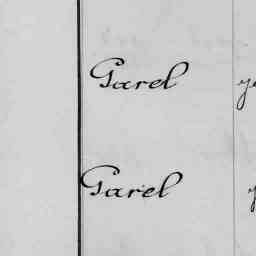 Garel
Garel